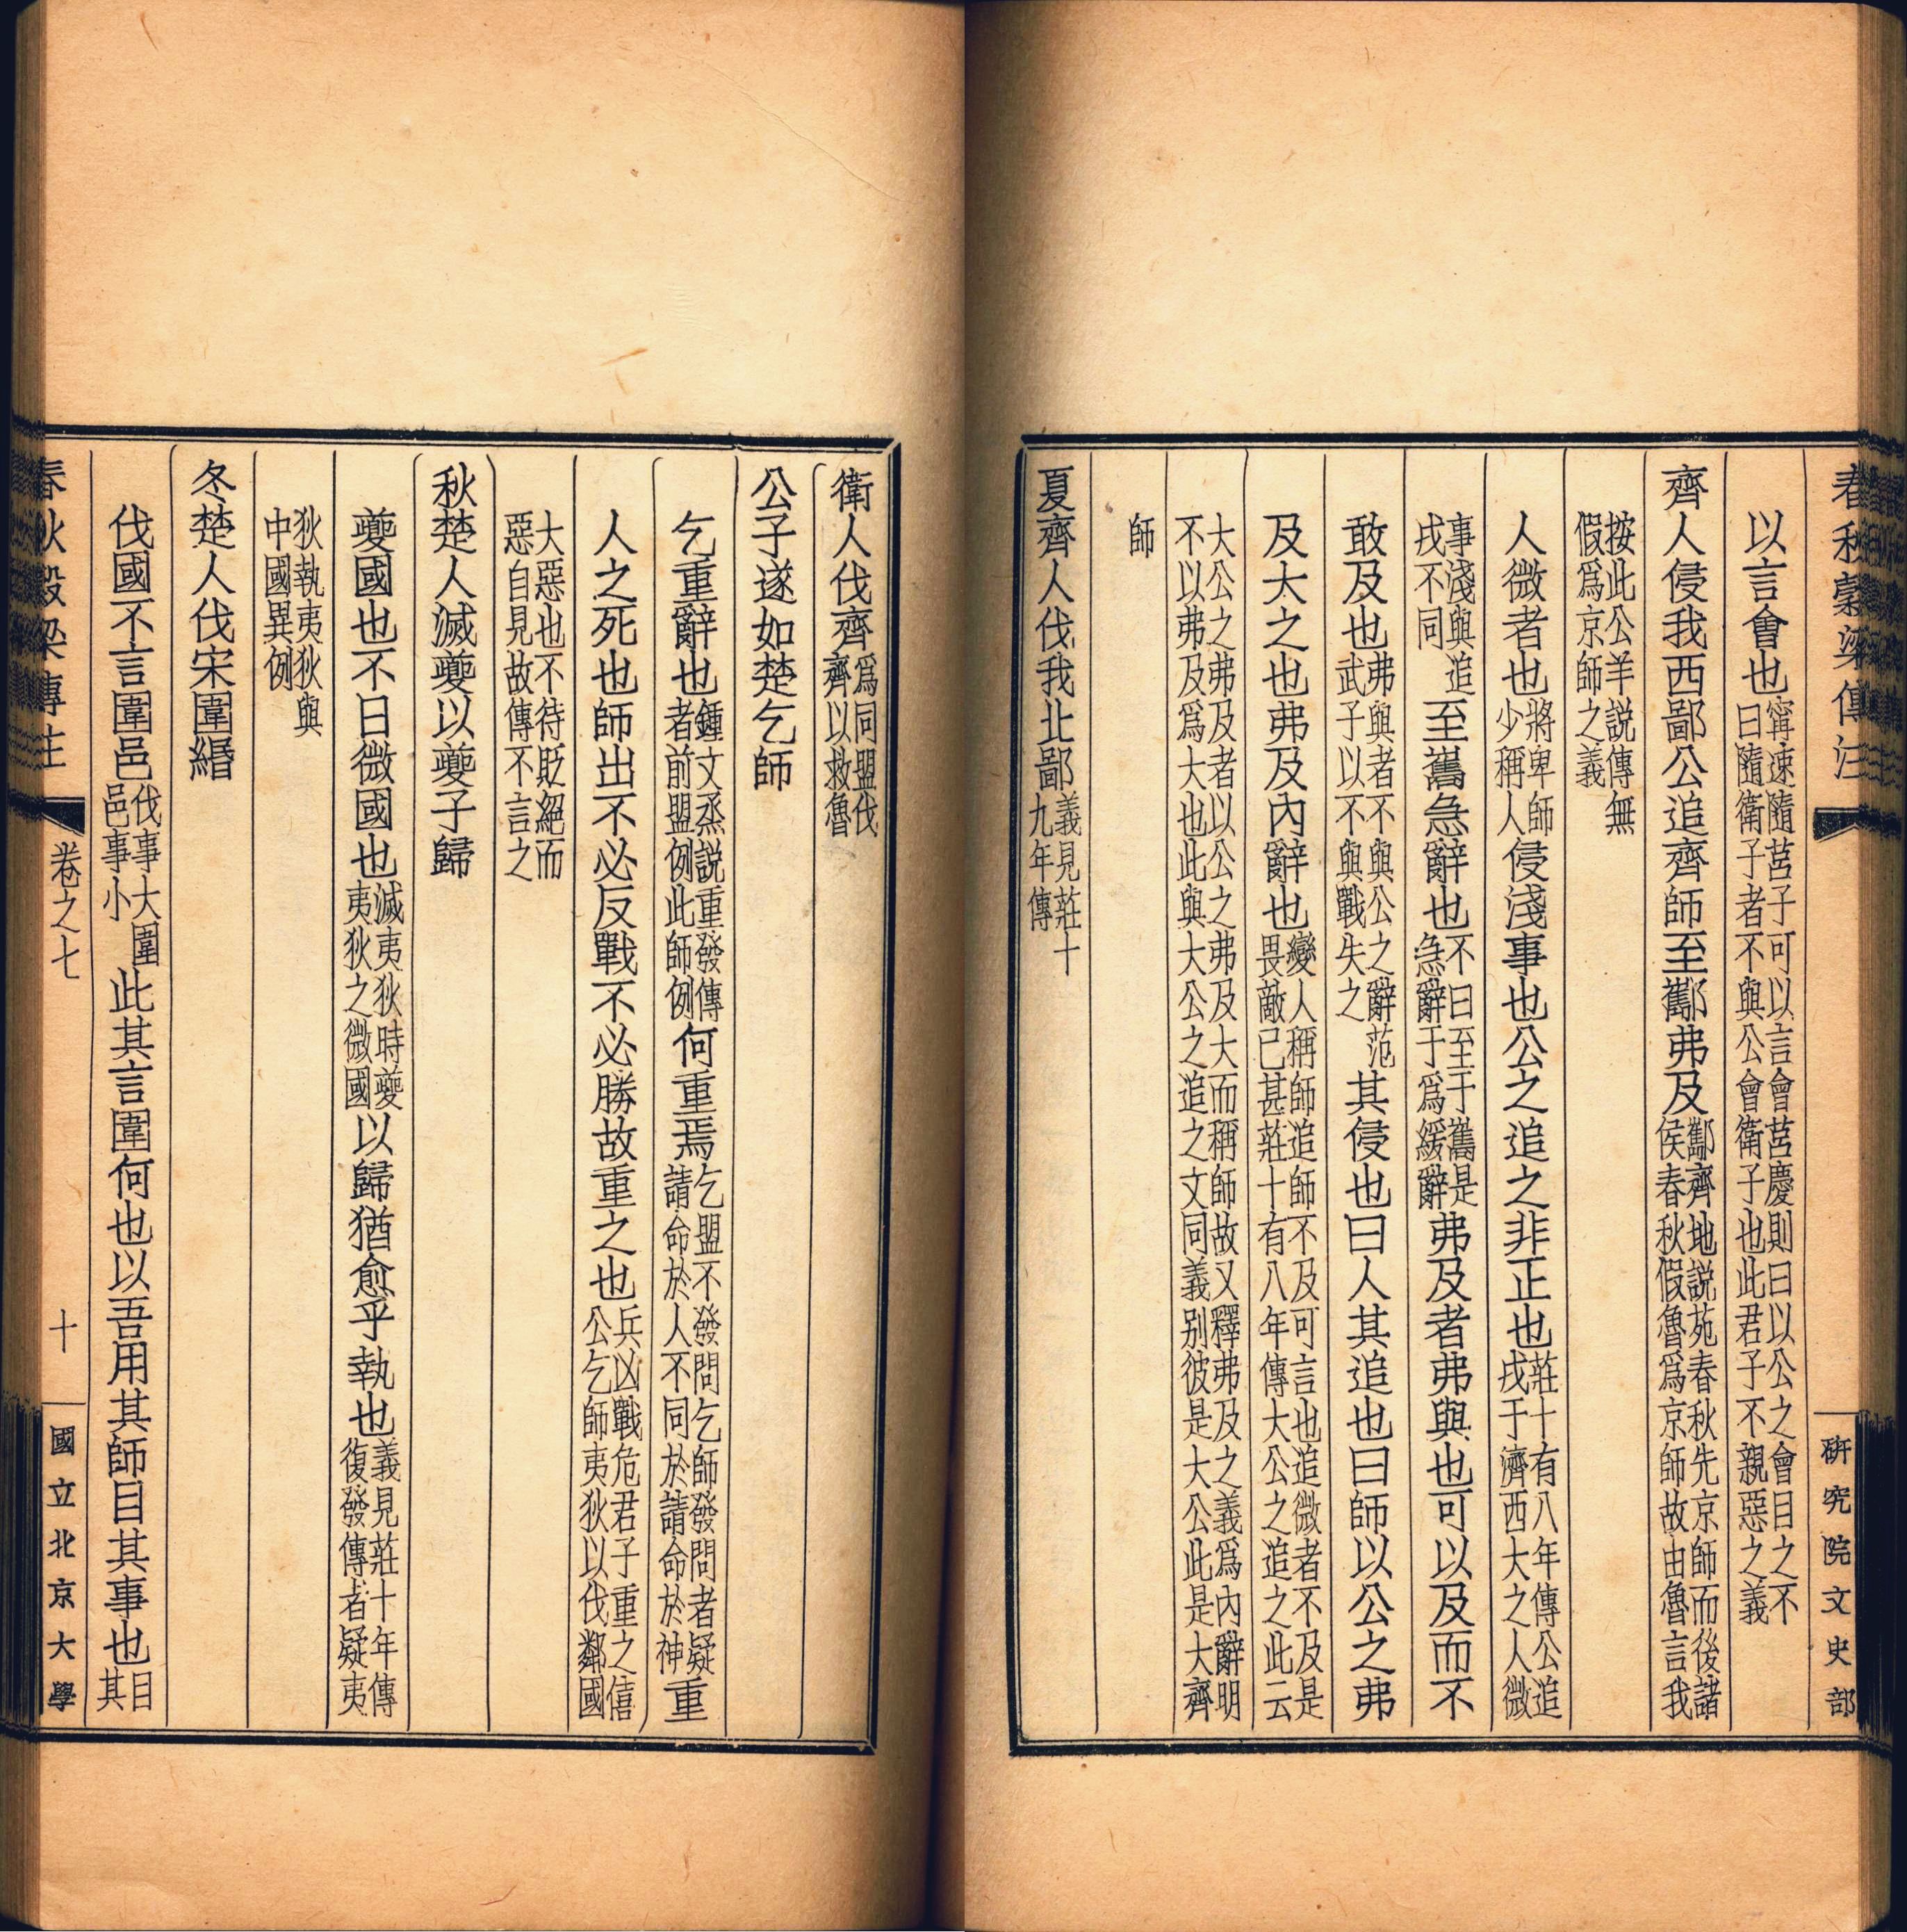 春秋穀梁傳注
研究院文史部
以言會也甯速隨莒子可以言會莒慶則曰以公之會目之不
曰隨衛子者不與公會衛子也此君子不親惡之義
齊人侵我西鄙公追齊師至酅弗及酅齊地説苑春秋先京師而後諸
侯春秋假魯爲京師故由魯言我
按此公羊説傳無
假爲京師之義
人微者也將卑師
少稱人侵淺事也公之追之非正也莊十有八年傳公追
戎于濟西大之人微
事淺與追
戎不同至巂急辭也不曰至于巂是
急辭于爲緩辭弗及者弗與也可以及而不
敢及也弗與者不與公之辭范
武子以不與戰失之其侵也曰人其追也曰師以公之弗
及大之也弗及內辭也變人稱師追師不及可言也追微者不及是
畏敵已甚莊十有八年傳大公之追之此云
大公之弗及者以公之弗及大而稱師故又釋弗及之義爲內辭明
不以弗及爲大也此與大公之追之文同義別彼是大公此是大齊
師
夏齊人伐我北鄙義見莊十
九年傳
衛人伐齊爲同盟伐
齊以救魯
公子遂如楚乞師
乞重辭也鍾文烝説重發傳
者前盟例此師例何重焉乞盟不發問乞師發問者疑
請命於人不同於請命於神重
人之死也師出不必反戰不必勝故重之也兵凶戰危君子重之僖
公乞師夷狄以伐鄰國
大惡也不待貶絕而
惡自見故傳不言之
秋楚人滅夔以夔子歸
夔國也不日微國也滅夷狄時夔
夷狄之微國以歸猶愈乎執也義見莊十年傳
復發傳者疑夷
狄執夷狄與
中國異例
冬楚人伐宋圍緡
伐國不言圍邑伐事大圍
邑事小此其言圍何也以吾用其師目其事也目
其
春秋穀梁傳注
卷之七
十
國立北京大學